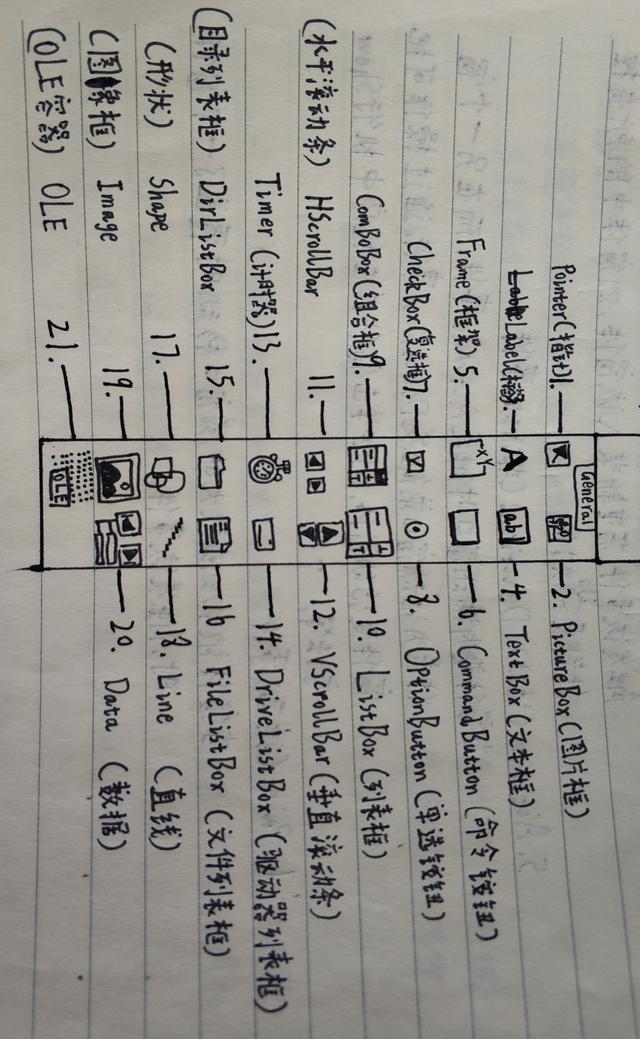 General
Pointer(指针)1.
2. PictureBox(图片框)
Label(标签)3.
A
ab
4. TextBox(文本框)
Frame(框架) 5.
XY
6. CommandButton (命令铵钮)
CheckBox(复选框)7.
8. OptionButton (单选铵钮)
ComBoBox(组合框)9.
10. ListBox (列表框)
(水平滚动条) HScrollBar 11.
12. VScrollBar(垂直滚动条)
Timer (计时器)13.
14. DriveListBox (驱动器列表框)
(目录列表框) DirListBox 15.
16 FileListBox (文件列表框)
(形状) Shape 17.
18. Line (直线)
(图象框) Image 19.
20. Data (数据)
(OLE容器) OLE 21.
OLE